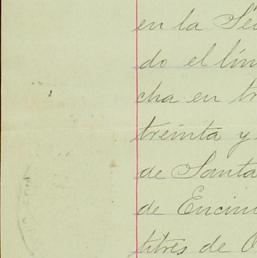 en la Se
do el lin
cha en tr
treinta y
de Santa
de Encin
titres de O